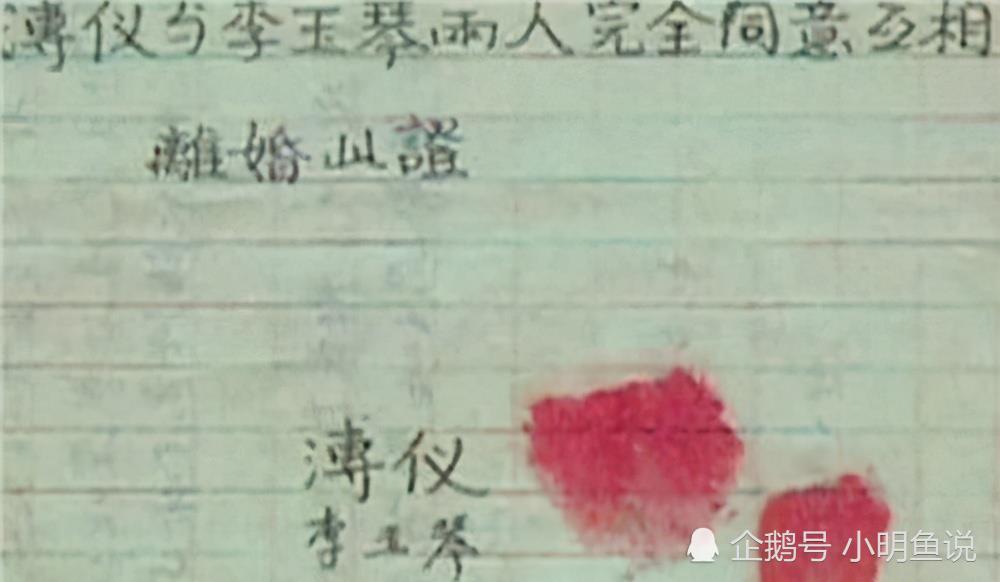 溥仪与李玉琴両人完全同意互相
離婚此證
溥仪
李玉琴
企鹅号 小明鱼说